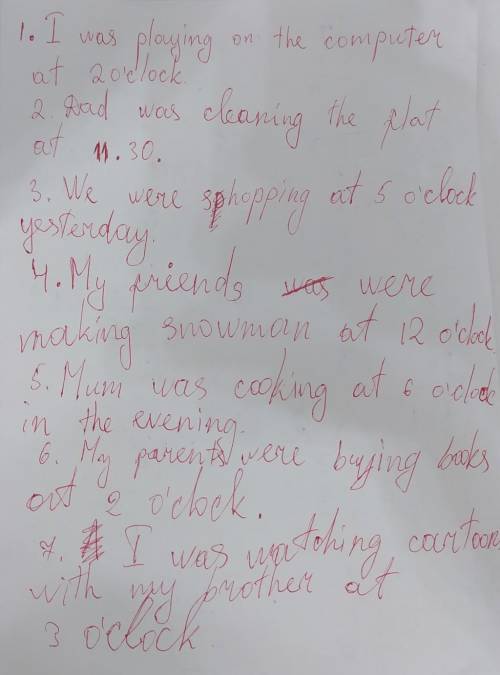 1. I was playing on the computer
at 2 o'clock.
2. Dad was cleaning the flat
at 11.30.
3. We were shopping at 5 o'clock
yesterday.
4. My friends was were
making snowman at 12 o'clock
5. Mum was cooking at 6 o'clock
in the evening.
6. My parents were buying books
at 2 o'clock.
7. I was watching cartoons
with my brother at
3 o'clock.